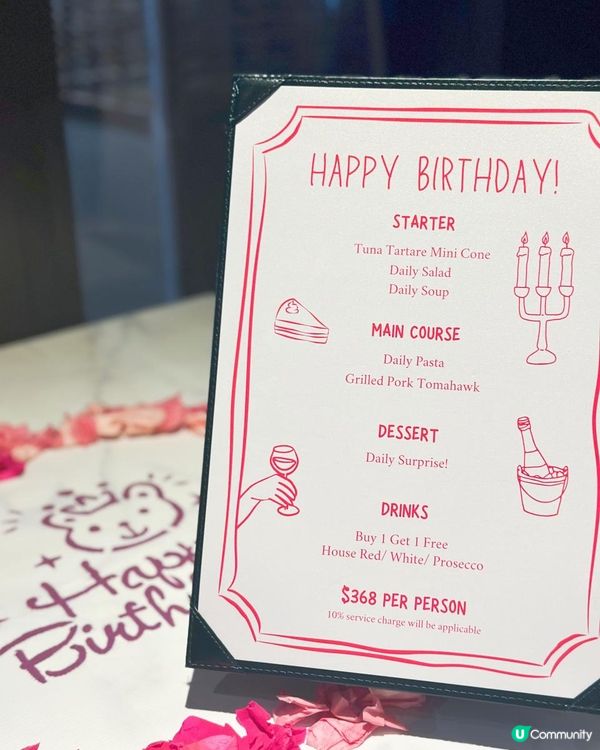 HAPPY BIRTHDAY!
STARTER
Tuna Tartare Mini Cone
Daily Salad
Daily Soup
MAIN COURSE
Daily Pasta
Grilled Pork Tomahawk
DESSERT
Daily Surprise!
DRINKS
Buy 1 Get 1 Free
House Red/ White/ Prosecco
$368 PER PERSON
10% service charge will be applicable
Happy
Birth
U Community